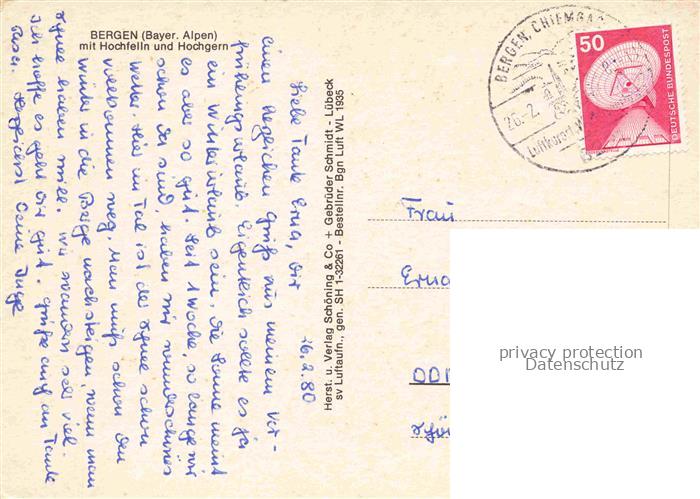 BERGEN (Bayer. Alpen)
mit Hochfelln und Hochgern
26.2.80
Liebe Tante Erna, Dir
einen herzlichen Gruß aus meinem Vor-
frühlingsurlaub. Eigentlich sollte es ja
ein Winterurlaub sein, die Sonne meint
es aber so gut. Seit 1 Woche, so lange wir
schon hier sind, haben wir wunderschönes
Wetter. Hier im Tal ist der Schnee schon
vollkommen weg. Man muß schon den
Winter in die Berge nachsteigen, wenn man
Schnee haben will. Wir wandern sehr viel.
Ich hoffe es geht Dir gut. Grüße auch an Tante
Rosa. Herzlichst Deine Inge
Herst. u. Verlag Schöning & Co + Gebrüder Schmidt - Lübeck
sv Luftaufn., gen. SH 1-32261 - Bestellnr. Bgn Luft WL 1935
BERGEN, CHIEMGAU
26.2.
Luftkurort
50
DEUTSCHE BUNDESPOST
Frau
Erna
privacy protection
Datenschutz